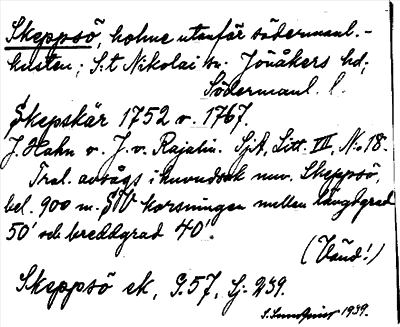 Skeppsö, holme utanför södermanl.-
kusten; S:t Nikolai sn. Jönåkers hd;
Södermanl. l.
Skepskär 1752 o. 1767.
J. Hahn o. J. v. Rajalin. SjA, Litt. III, No 18.
Trol. avsågs ihuvudsak nuv. Skeppsö,
bel. 900 m. SV korsningen mellan längdgrad
50' och breddgrad 40'.
(Vänd!)
Skeppsö ek. G.57, Gj. 239.
S. Lundqvist 1939.